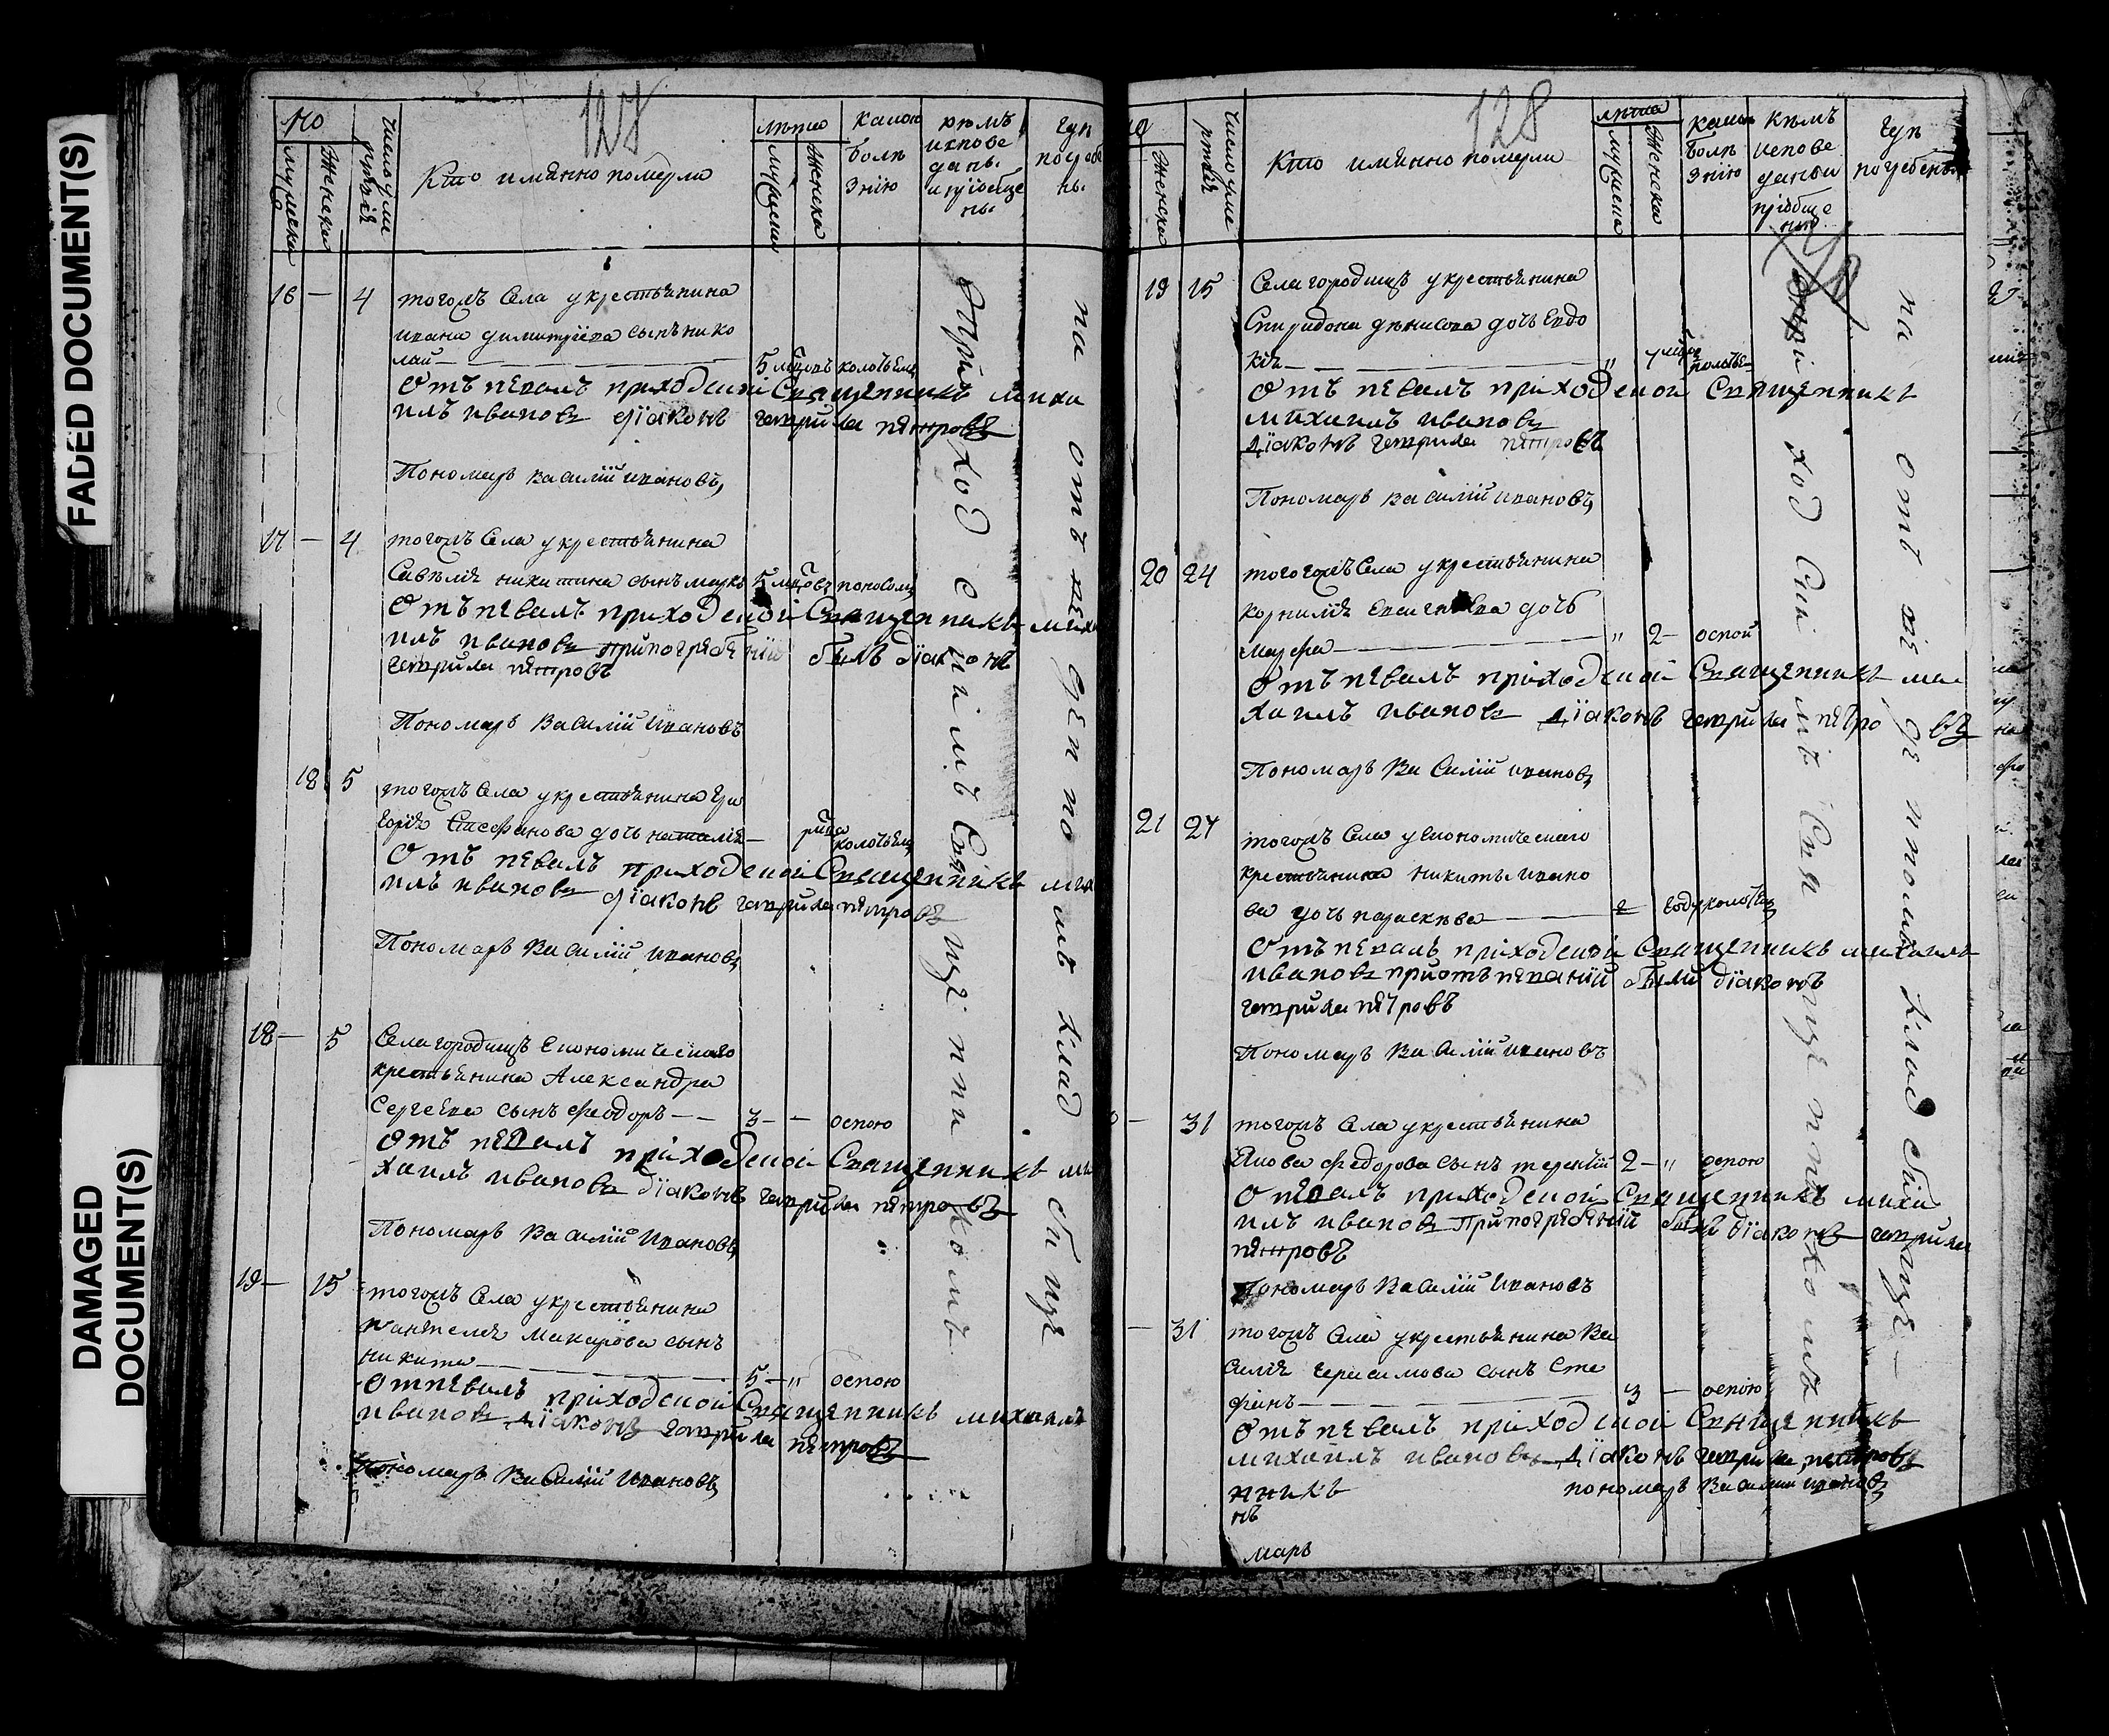 FADED DOCUMENT(S)
DAMAGED
DOCUMENT(S)
128
№
мужеска
Женска
число уме
ртвія
Кто имянно померли
лѣта
мужеска
Женска
какою
болѣ
знію
кѣмъ
испове
даны
и пріобще
ны
гдѣ
погребе
ны
16 — 4 тогожъ Села укрестьянина
ивана димитріева сынъ нико
лай — 5 колотьемъ
Отъ певалъ приходской Священникъ миха
илъ иванов діаконъ гаврила петровъ
Пономарь Василій ивановъ
17 — 4 тогожъ Села укрестьянина
Савелія никитина сынъ марко 5 поносомъ
Отъ певалъ приходской Священникъ миха
илъ иванов припогребеніи былъ діаконъ
гаврила петровъ
Пономарь Василій Ивановъ
18 5 тогожъ Села укрестьянина гри
горія Стефанова дочь наталія — колотьемъ
Отъ певалъ приходской Священникъ миха
илъ иванов діаконъ гаврила петровъ
Пономарь Василій ивановъ
18 — 5 Села городищъ Економическаго
крестьянина Александра
Сергеева сынъ феодоръ — 3 — оспою
Отъ певалъ приходской Священникъ ми
хаилъ иванов діаконъ гаврила петровъ
Пономарь Василій Ивановъ
19 — 15 тогожъ Села укрестьянина
Пантелея Макарова сынъ
никита — 5 — „ оспою
Отпевалъ приходской Священникъ михаилъ
иванов діаконъ гаврила петровъ
Пономарь Василій Ивановъ
При ход с ки мъ Свя ще нни комъ
на отъ ве де нно мъ клад би ще
128
Женска
Число уме
ртвія
Кто имянно померли
лѣта
мужеска
Женска
какою
болѣ
знію
Кѣмъ
испове
даны и
пріобще
ны
гдѣ
погребены
19 15 Села городищъ укрестьянина
Спиридона денисова дочь Евдо
кія — „ 7
Отъ певалъ приходской Священникъ
михаилъ иванов
діаконъ гаврила петровъ
Пономарь Василій ивановъ
20 24 тогожъ Села укрестьянина
корнилія дочь
марфа — „ 2 — оспой
Отъ певалъ приходской Священникъ ми
хаилъ иванов діаконъ гаврила петро въ
Пономарь Василій ивановъ
21 27 тогожъ Села уЕкономическаго
крестьянина никиты ивано
ва дочь параскева —
Отъ певалъ приходской Священникъ михаилъ
иванов приотъпеваніи были діаконъ
гаврила петровъ
Пономарь Василій ивановъ
— 31 тогожъ Села укрестьянина
Якова федорова сынъ терентій 2 — „ оспою
Отпевалъ приходской Священникъ миха
илъ иванов припогребеніи былъ діаконъ гаврила
петровъ
Пономарь Василій Ивановъ
— 31 тогожъ Села укрестьянина Ва
силія герасимова сынъ Сте
фанъ — 3 — оспою
Отъ певалъ приходской Священникъ
михаилъ иванов діаконъ гаврила петровъ
нникъ пономарь Василій ивановъ
нъ
марь
При ход ски мъ Свя ще нни ко мъ
на отъ ве де нномъ клад би ще —